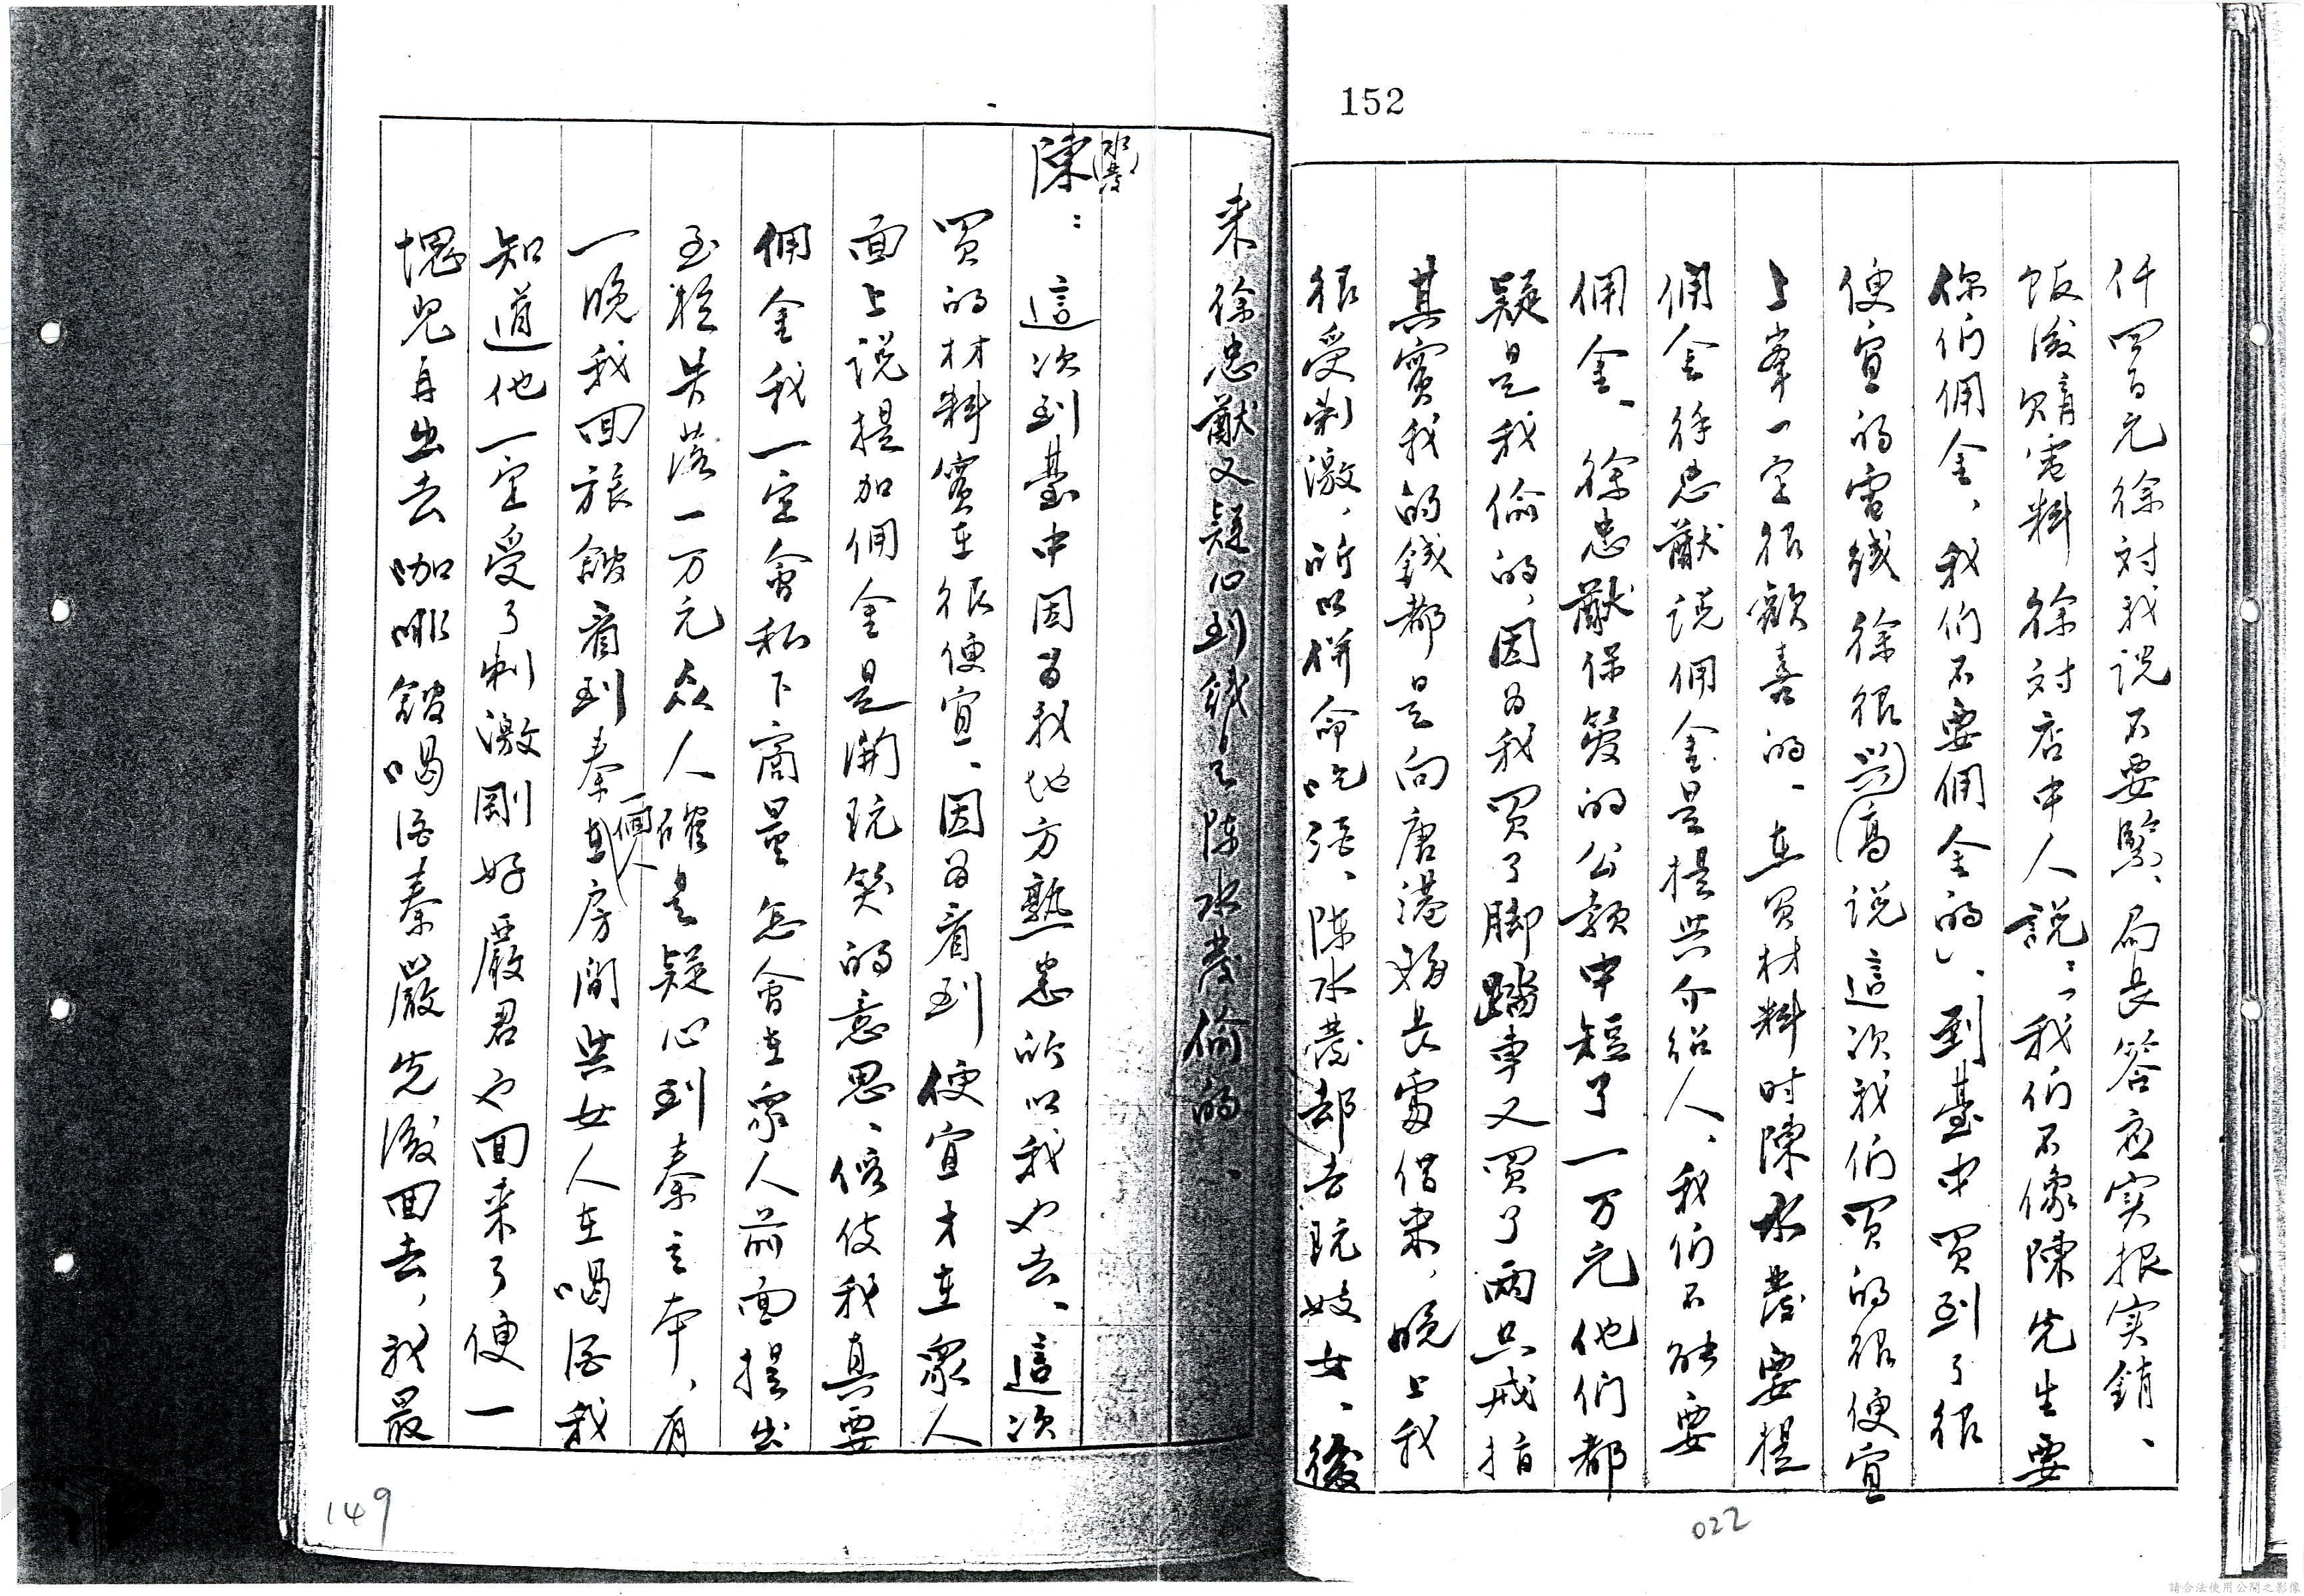 152
仟四百元徐対我説不要緊、局長答应实报实銷、
飯後購電料徐対店中人說：「我们不像陳先生要
你们佣金、我们不要佣金的」、到臺中買到了很
便宜的電线徐很興高説這次我们買的很便宜
上峯一定很歡喜的、在買材料时陳水發要提
佣金徐忠猷説佣金是提与介紹人、我们不能要
佣金、徐忠猷保發的公款中短了一万元他们都
疑是我偷的、因为我買了脚踏車又買了兩只戒指
其實我的錢都是向唐港務長處借来、晚上我
很受刺激、所以拼命吃酒、陈水發却去玩妓女、後
来徐忠猷又疑心到錢是陈水發偷的、
陳：這次到臺中因为我地方熟悉所以我也去、這次
買的材料實在很便宜、因为看到便宜才在衆人
面上説提加佣金是開玩笑的意思、倘使我真要
佣金我一定會私下商量怎會在衆人前面提出
至於失落一万元众人確是疑心到秦立本、有
一晚我回旅館看到秦一個人在房間与女人在喝酒我
知道他一定受了刺激剛好嚴君也回来了便一
塊兒再出去咖啡館喝酒秦嚴先後回去、我最
149
022
請合法使用公開之影像